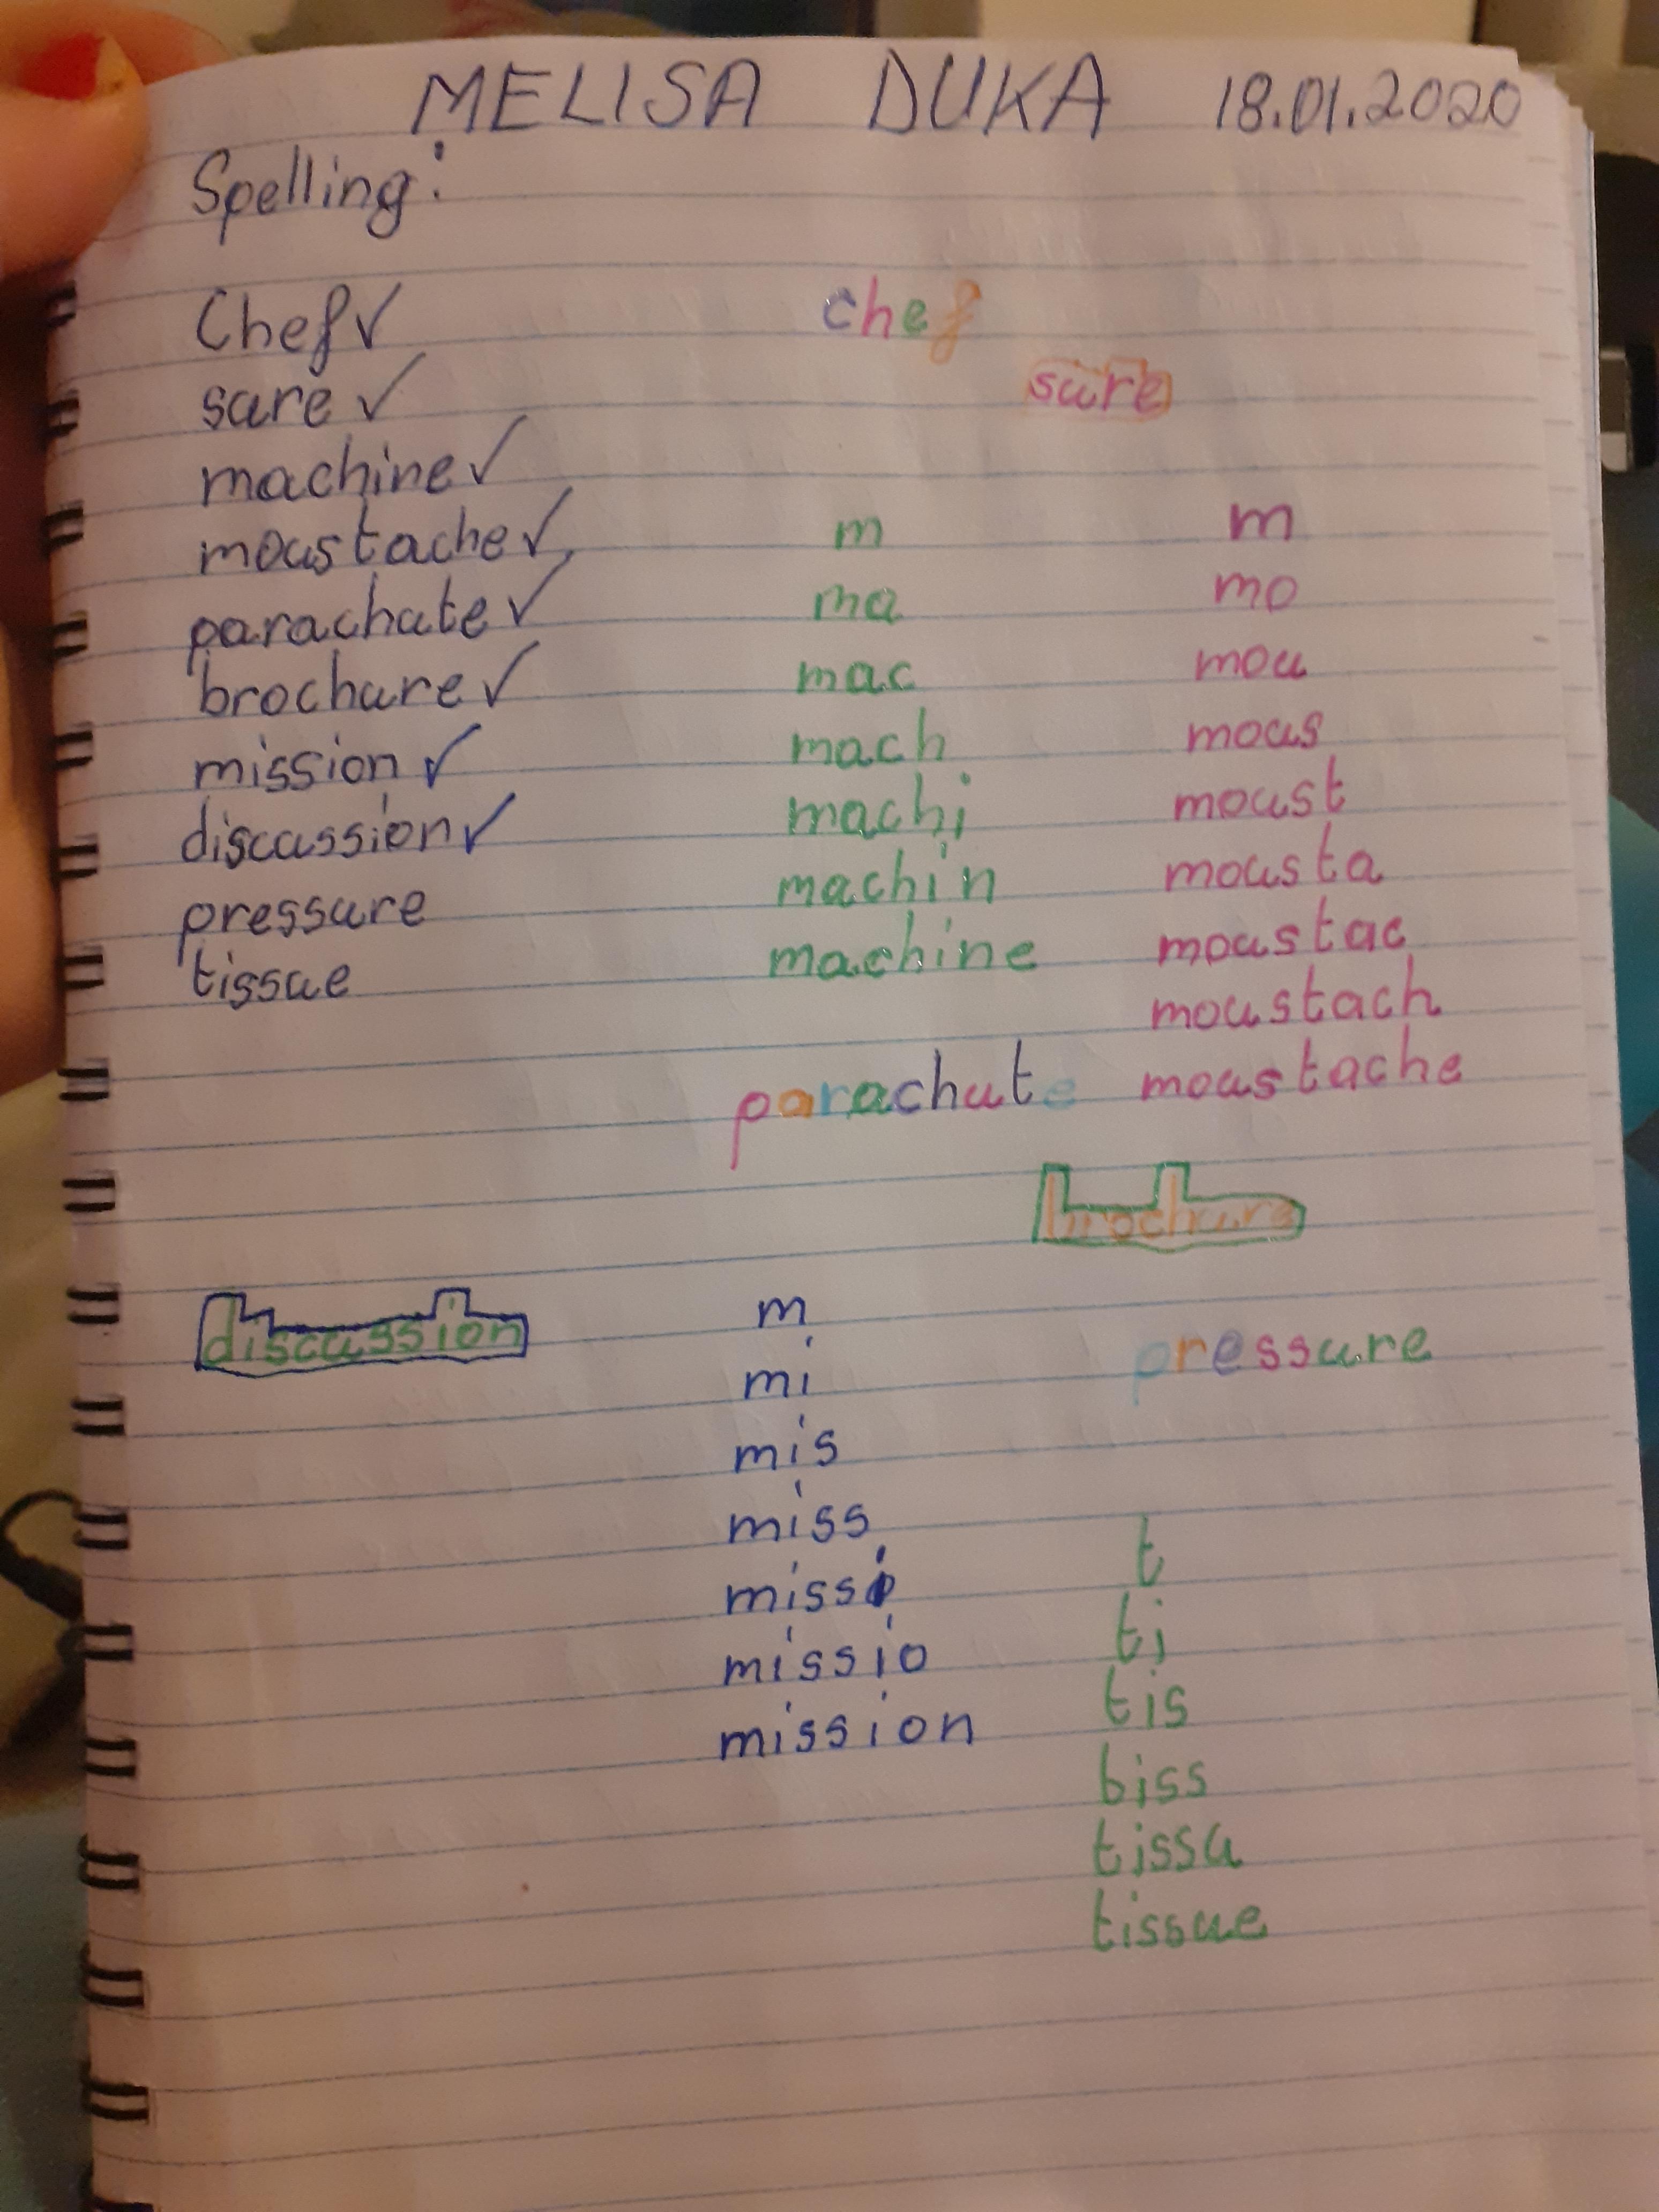 MELISA DUKA 18.01.2020
Spelling:
Chef ✓
sure ✓
machine ✓
moustache ✓
parachute ✓
brochure ✓
mission ✓
discussion ✓
pressure
tissue
chef
sure
m
ma
mac
mach
machi
machin
machine
m
mo
mou
mous
moust
mousta
moustac
moustach
moustache
parachute
brochure
discussion
m
mi
mis
miss
missi
missio
mission
pressure
t
ti
tis
biss
tissu
tissue